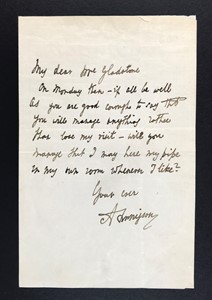 My dear Mr Gladstone
On Monday then – if all be well
As you are good enough to say that
you will manage anything rather
than lose my visit – will you
manage that I may have my pipe
in my own room whenever I like?
Yours ever
A Tennyson